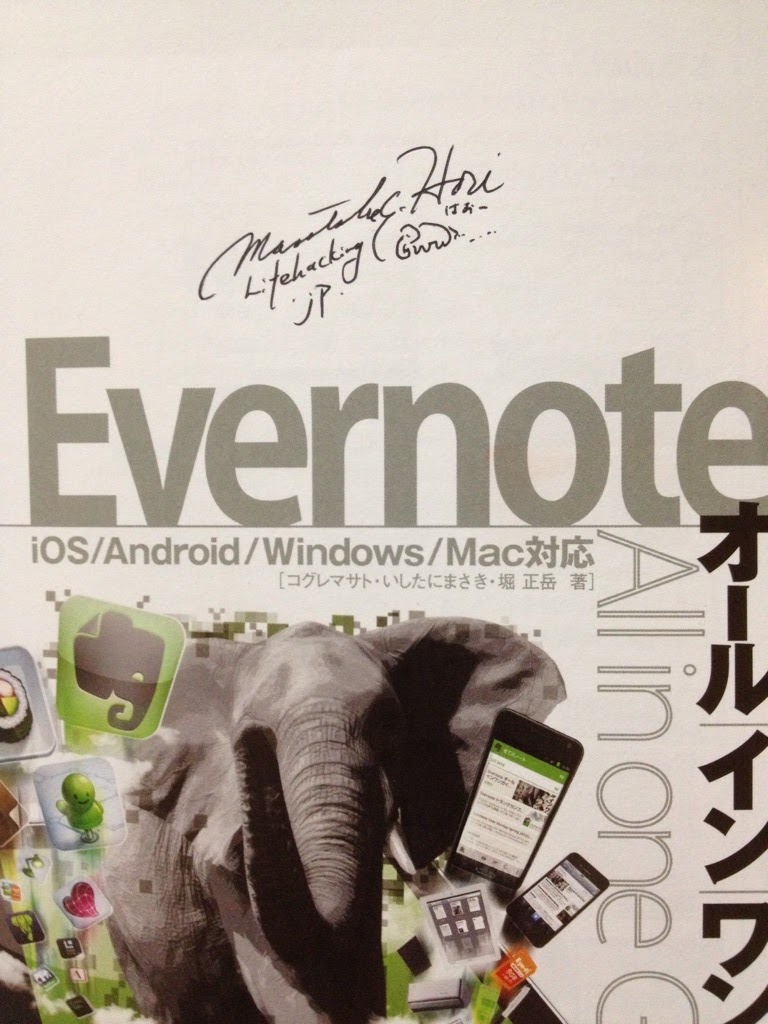 Masatake C. Hori
Lifehacking
.jp.
はおー
Evernote
iOS/Android/Windows/Mac対応
[コグレマサト・いしたにまさき・堀 正岳 著]
オールインワン
All in one G